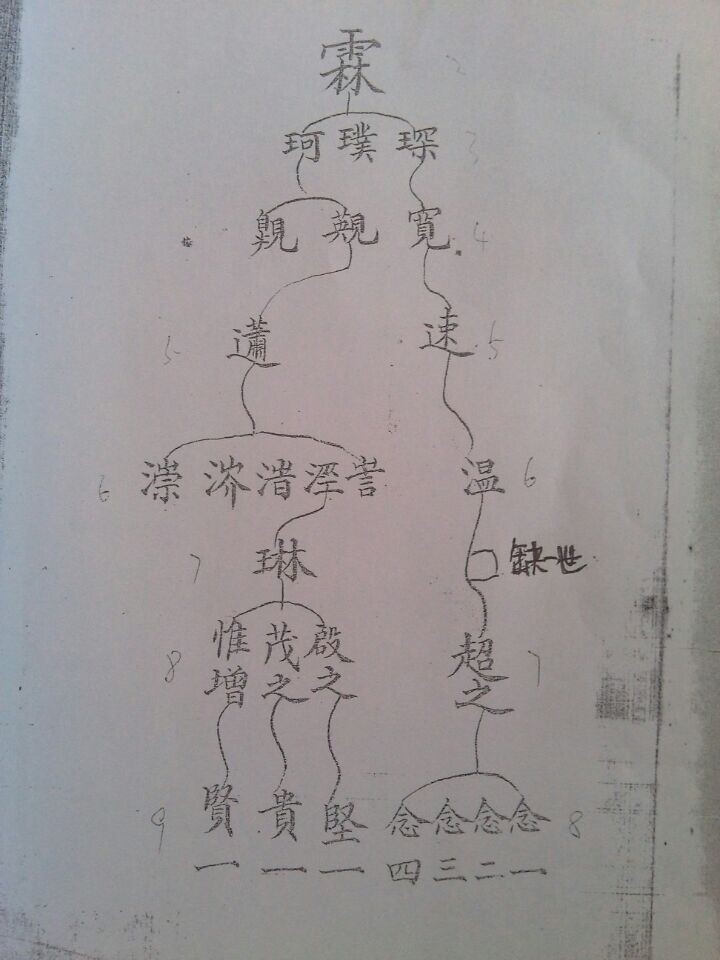 霖 2
珂 璞 琛 3
覭 寬 4
5 薖 速 5
6 漴 渗 湝 溼 誩 温 6
7 琳 缺一世
8 惟增 茂之 啟之 超之 7
9 賢一 貴一 堅一 念四 念三 念二 念一 8